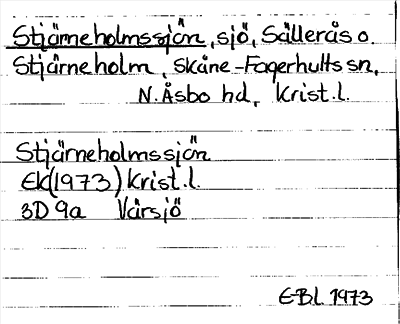 Stjärneholmssjön, sjö, Sälleråso.
Stjärneholm, Skåne-Fagerhults sn,
N. Åsbo hd, Krist.l.
Stjärneholmssjön
Ek(1973) Krist.l.
3D 9a Värsjö
E-B.L. 1973